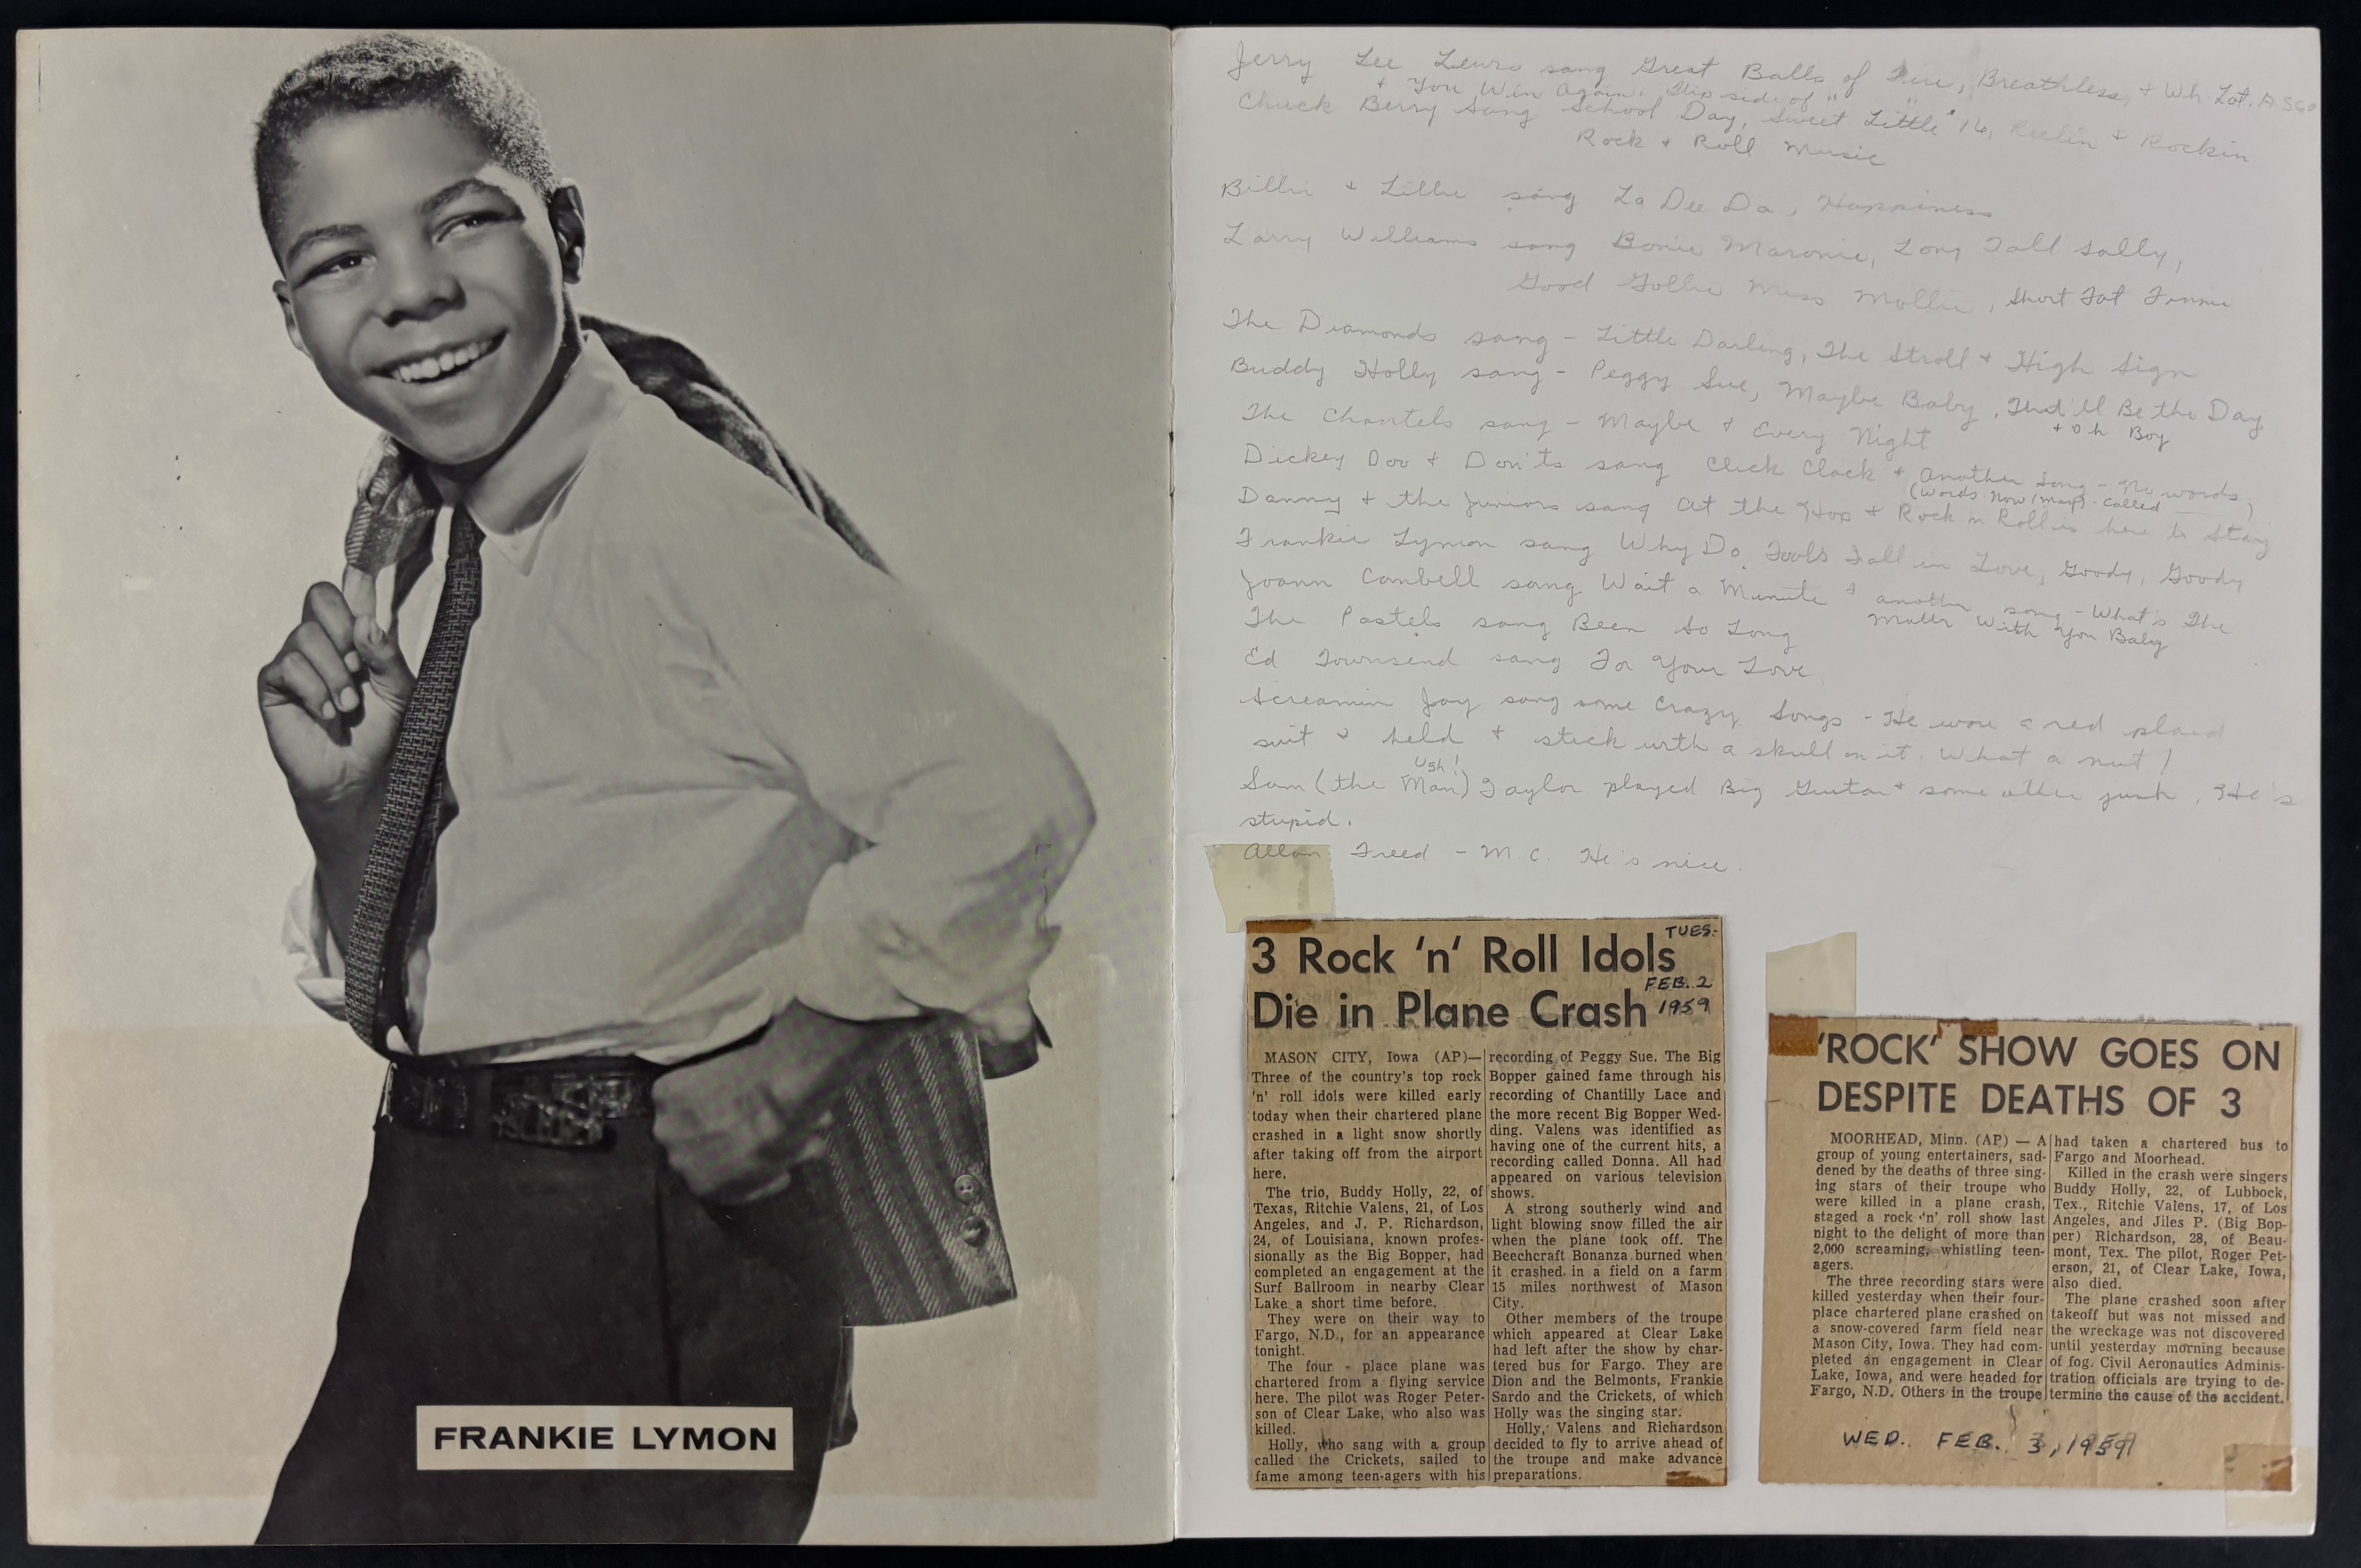 FRANKIE LYMON
Jerry Lee Lewis sang Great Balls of Fire, Breathless, + Wh. Lot. A
+ You Win Again. Flip side of " "
Chuck Berry Sang School Day, Sweet Little 16, Reelin + Rockin
Rock + Roll Music
Billie + Lillie sang La Dee Da, Happiness
Larry Williams sang Bonie Maronie, Long Tall Sally,
Good Gollie Miss Mollie, Short Fat Fannie
The Diamonds sang - Little Darling, The Stroll + High Sign
Buddy Holly sang - Peggy Sue, Maybe Baby, That'll Be the Day
+ Oh Boy
The Chantels sang - Maybe + Every Night
Dickey Doo + Don'ts sang Click Clack + Another Song - No words
(Words Now (Mar) - Called ____ )
Danny + the Juniors sang At the Hop + Rock n Roll is here to Stay
Frankie Lymon sang Why Do Fools Fall in Love, Goody, Goody
Joann Cambell sang Wait a Minute + another song - What's The
Matter With You Baby
The Pastels sang Been So Long
Ed Townsend sang For Your Love
Screamin Jay sang some Crazy Songs - He wore a red plaid
suit + held + stick with a skull on it. What a nut!
Ugh!
Sam (the Man) Taylor played Big Guitar + some other junk. He's
stupid.
Allan Freed - M.C. He's nice.
3 Rock 'n' Roll Idols
Die in Plane Crash
TUES.
FEB. 2
1959
MASON CITY, Iowa (AP)—
Three of the country's top rock
'n' roll idols were killed early
today when their chartered plane
crashed in a light snow shortly
after taking off from the airport
here.
The trio, Buddy Holly, 22, of
Texas, Ritchie Valens, 21, of Los
Angeles, and J. P. Richardson,
24, of Louisiana, known profes-
sionally as the Big Bopper, had
completed an engagement at the
Surf Ballroom in nearby Clear
Lake a short time before.
They were on their way to
Fargo, N.D., for an appearance
tonight.
The four - place plane was
chartered from a flying service
here. The pilot was Roger Peter-
son of Clear Lake, who also was
killed.
Holly, who sang with a group
called the Crickets, sailed to
fame among teen-agers with his
recording of Peggy Sue. The Big
Bopper gained fame through his
recording of Chantilly Lace and
the more recent Big Bopper Wed-
ding. Valens was identified as
having one of the current hits, a
recording called Donna. All had
appeared on various television
shows.
A strong southerly wind and
light blowing snow filled the air
when the plane took off. The
Beechcraft Bonanza burned when
it crashed in a field on a farm
15 miles northwest of Mason
City.
Other members of the troupe
which appeared at Clear Lake
had left after the show by char-
tered bus for Fargo. They are
Dion and the Belmonts, Frankie
Sardo and the Crickets, of which
Holly was the singing star.
Holly, Valens and Richardson
decided to fly to arrive ahead of
the troupe and make advance
preparations.
'ROCK' SHOW GOES ON
DESPITE DEATHS OF 3
MOORHEAD, Minn. (AP) — A
group of young entertainers, sad-
dened by the deaths of three sing-
ing stars of their troupe who
were killed in a plane crash,
staged a rock 'n' roll show last
night to the delight of more than
2,000 screaming, whistling teen-
agers.
The three recording stars were
killed yesterday when their four-
place chartered plane crashed on
a snow-covered farm field near
Mason City, Iowa. They had com-
pleted an engagement in Clear
Lake, Iowa, and were headed for
Fargo, N.D. Others in the troupe
had taken a chartered bus to
Fargo and Moorhead.
Killed in the crash were singers
Buddy Holly, 22, of Lubbock,
Tex., Ritchie Valens, 17, of Los
Angeles, and Jiles P. (Big Bop-
per) Richardson, 28, of Beau-
mont, Tex. The pilot, Roger Pet-
erson, 21, of Clear Lake, Iowa,
also died.
The plane crashed soon after
takeoff but was not missed and
the wreckage was not discovered
until yesterday morning because
of fog. Civil Aeronautics Adminis-
tration officials are trying to de-
termine the cause of the accident.
WED. FEB. 3, 1959